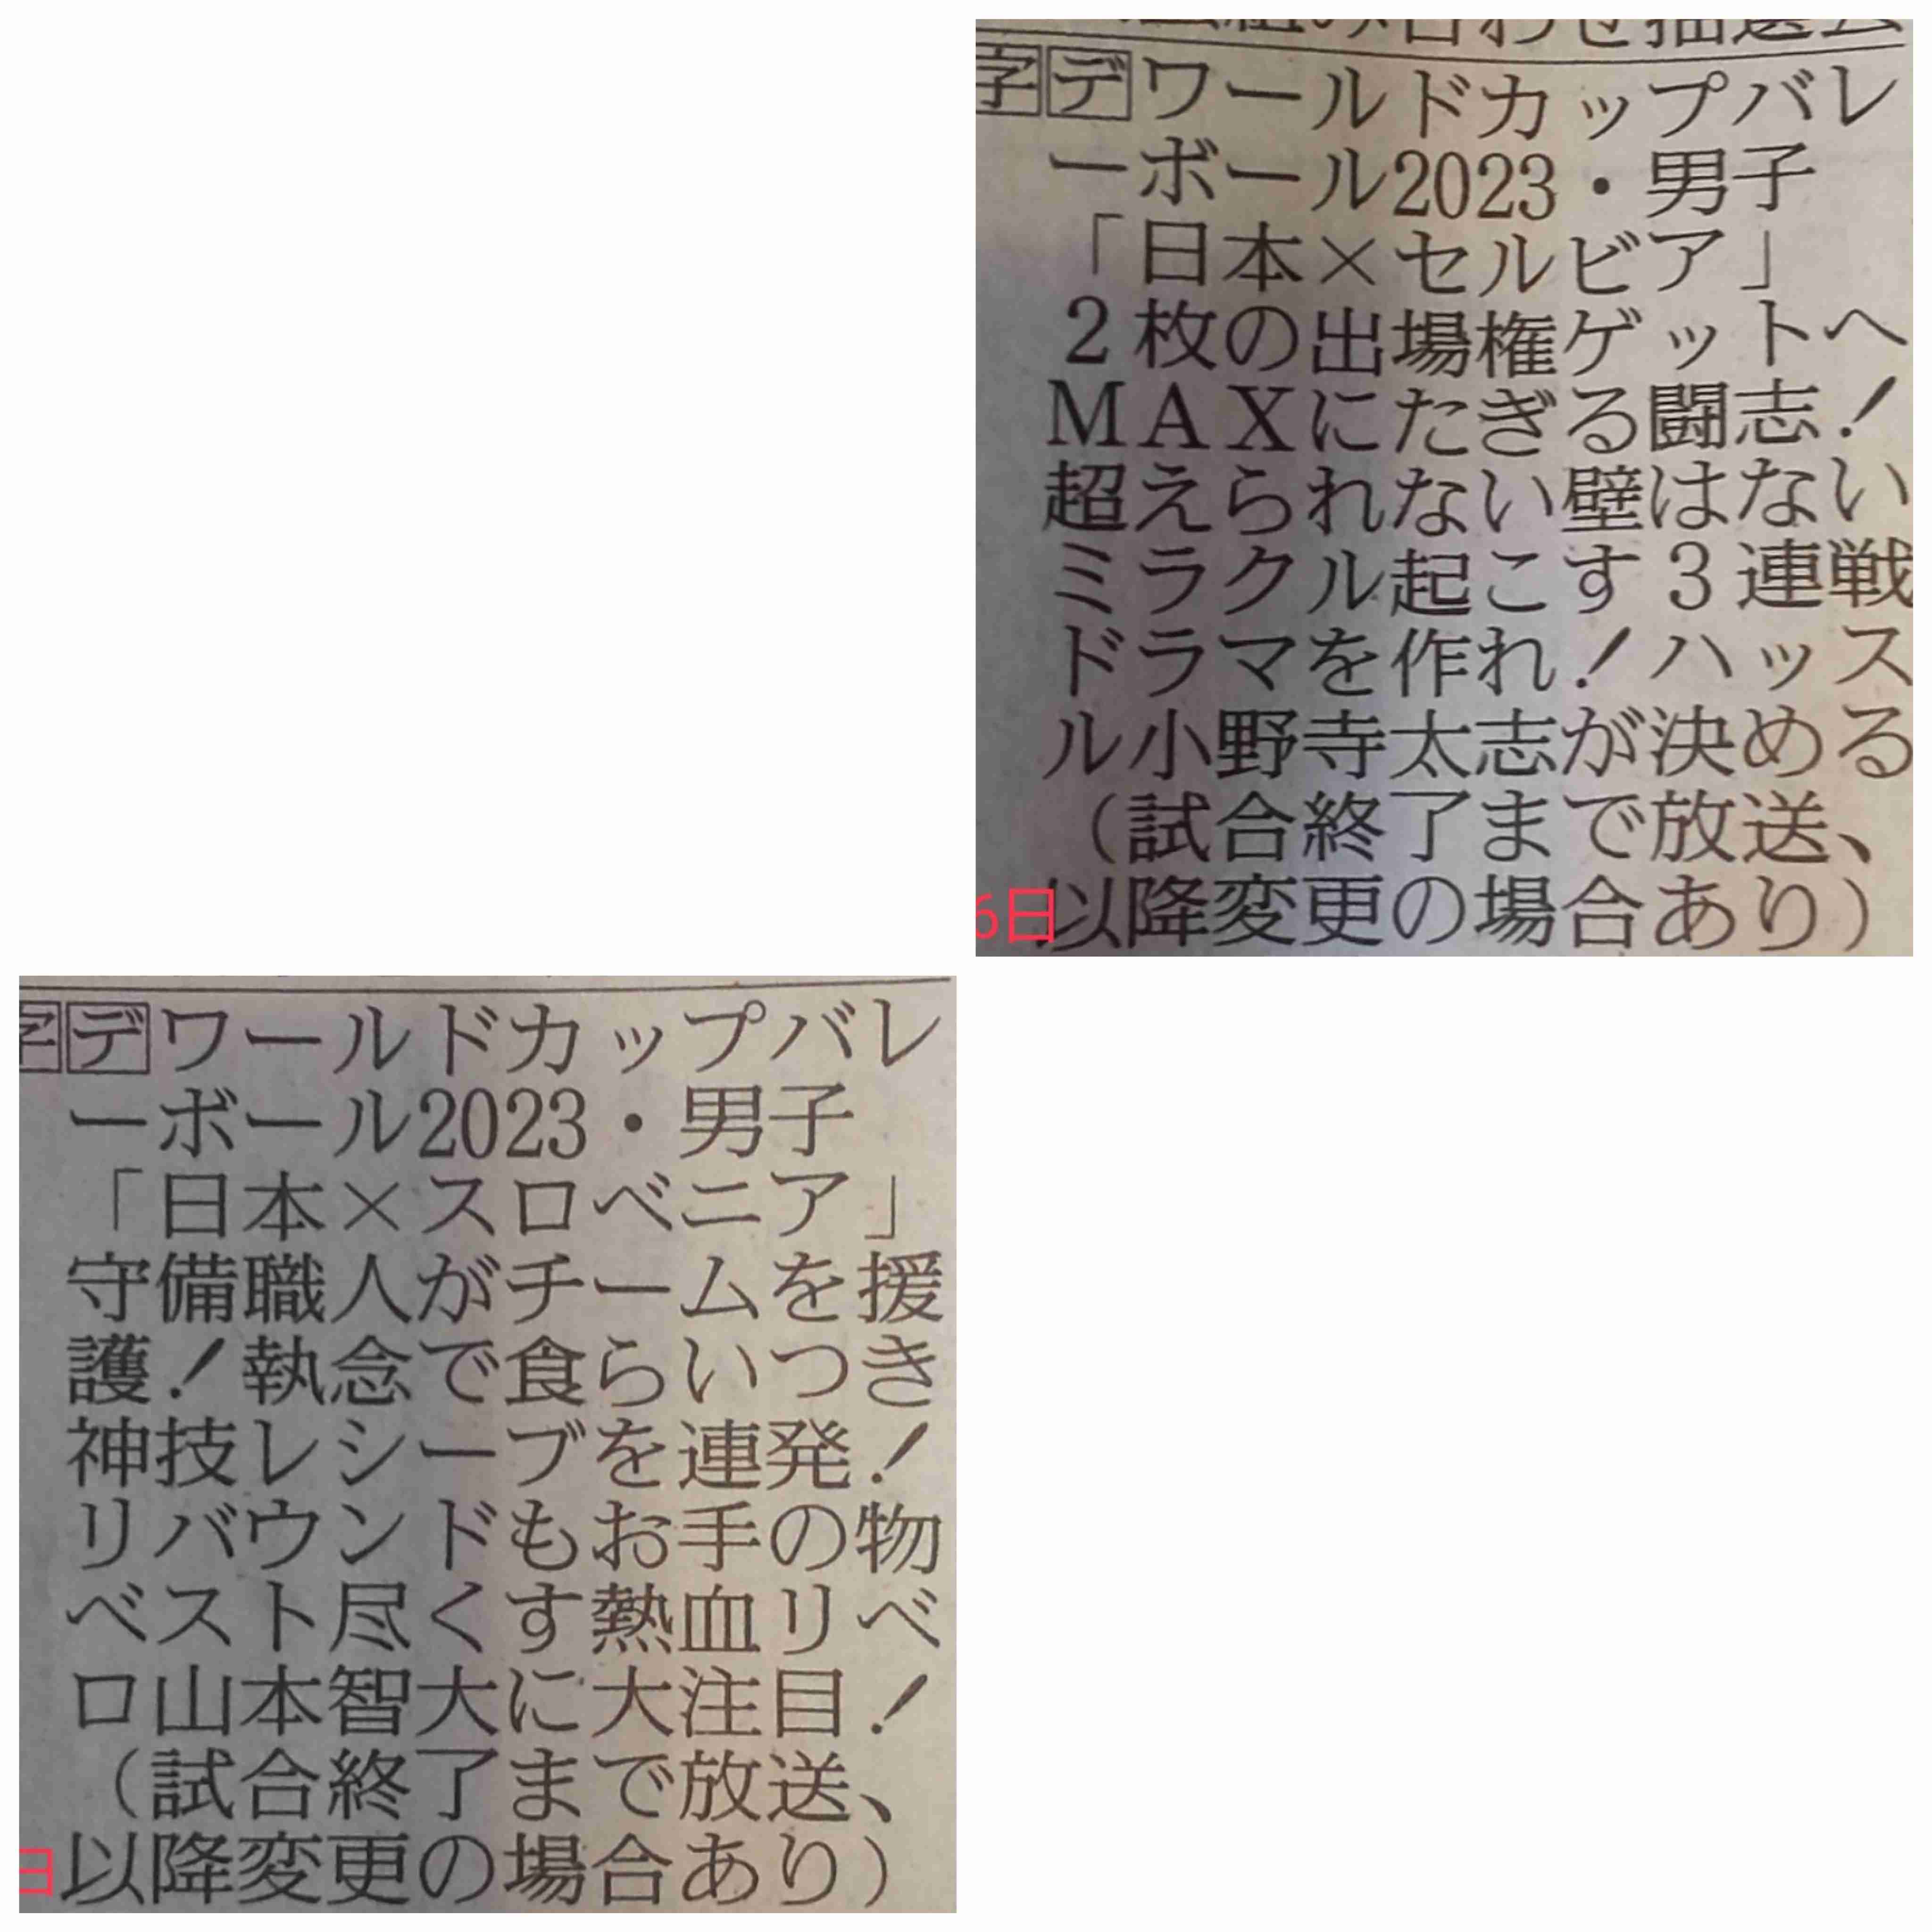 字デワールドカップバレ
ーボール2023・男子
「日本×セルビア」
2枚の出場権ゲットへ
MAXにたぎる闘志！
超えられない壁はない
ミラクル起こす3連戦
ドラマを作れ！ハッス
ル小野寺太志が決める
（試合終了まで放送、
以降変更の場合あり）
6日
字デワールドカップバレ
ーボール2023・男子
「日本×スロベニア」
守備職人がチームを援
護！執念で食らいつき
神技レシーブを連発！
リバウンドもお手の物
ベスト尽くす熱血リベ
ロ山本智大に大注目！
（試合終了まで放送、
以降変更の場合あり）
日